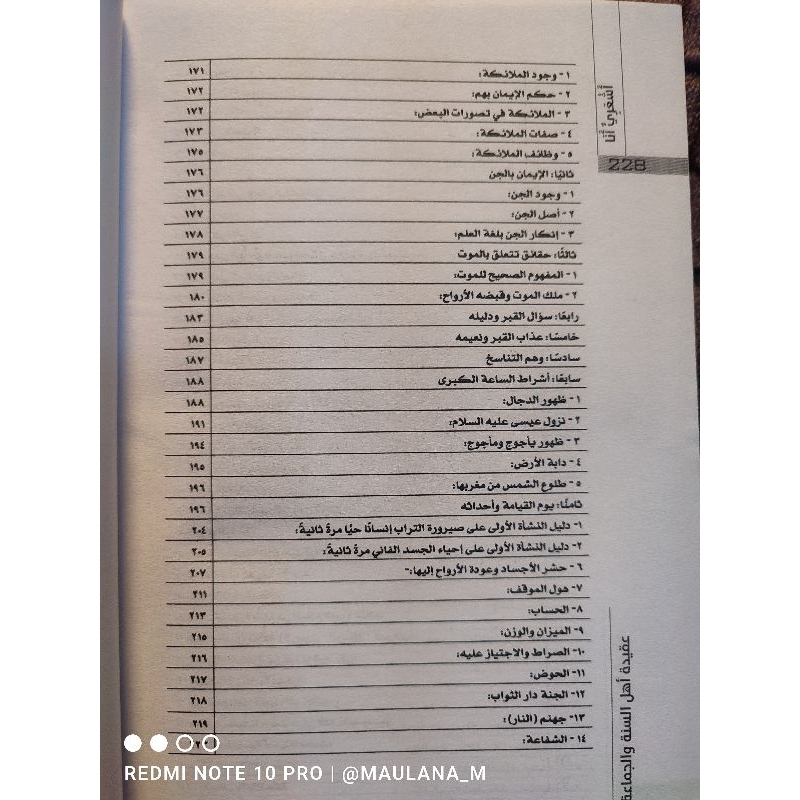 أشعريٌّ أنا
228
١- وجود الملائكة: ١٧١
٢- حكم الإيمان بهم: ١٧٢
٣- الملائكة في تصورات البعض: ١٧٢
٤- صفات الملائكة: ١٧٣
٥- وظائف الملائكة: ١٧٥
ثانيًا: الإيمان بالجن ١٧٦
١- وجود الجن: ١٧٦
٢- أصل الجن: ١٧٧
٣- إنكار الجن بلغة العلم: ١٧٨
ثالثًا: حقائق تتعلق بالموت ١٧٩
١- المفهوم الصحيح للموت: ١٧٩
٢- ملك الموت وقبضه الأرواح: ١٨٠
رابعًا: سؤال القبر ودليله ١٨٣
خامسًا: عذاب القبر ونعيمه ١٨٥
سادسًا: وهم التناسخ ١٨٧
سابعًا: أشراط الساعة الكبرى ١٨٨
١- ظهور الدجال: ١٨٨
٢- نزول عيسى عليه السلام: ١٩١
٣- ظهور يأجوج ومأجوج: ١٩٤
٤- دابة الأرض: ١٩٥
٥- طلوع الشمس من مغربها: ١٩٦
ثامنًا: يوم القيامة وأحداثه ١٩٦
١- دليل النشأة الأولى على صيرورة التراب إنسانًا حيًا مرة ثانية: ٢٠٤
٢- دليل النشأة الأولى على إحياء الجسد الفاني مرة ثانية: ٢٠٥
٦- حشر الأجساد وعودة الأرواح إليها:- ٢٠٧
٧- هول الموقف: ٢١١
٨- الحساب: ٢١٣
٩- الميزان والوزن: ٢١٥
١٠- الصراط والاجتياز عليه: ٢١٦
١١- الحوض: ٢١٧
١٢- الجنة دار الثواب: ٢١٨
١٣- جهنم (النار): ٢١٩
١٤- الشفاعة:
عقيدة أهل السنة والجماعة
REDMI NOTE 10 PRO | @MAULANA_M